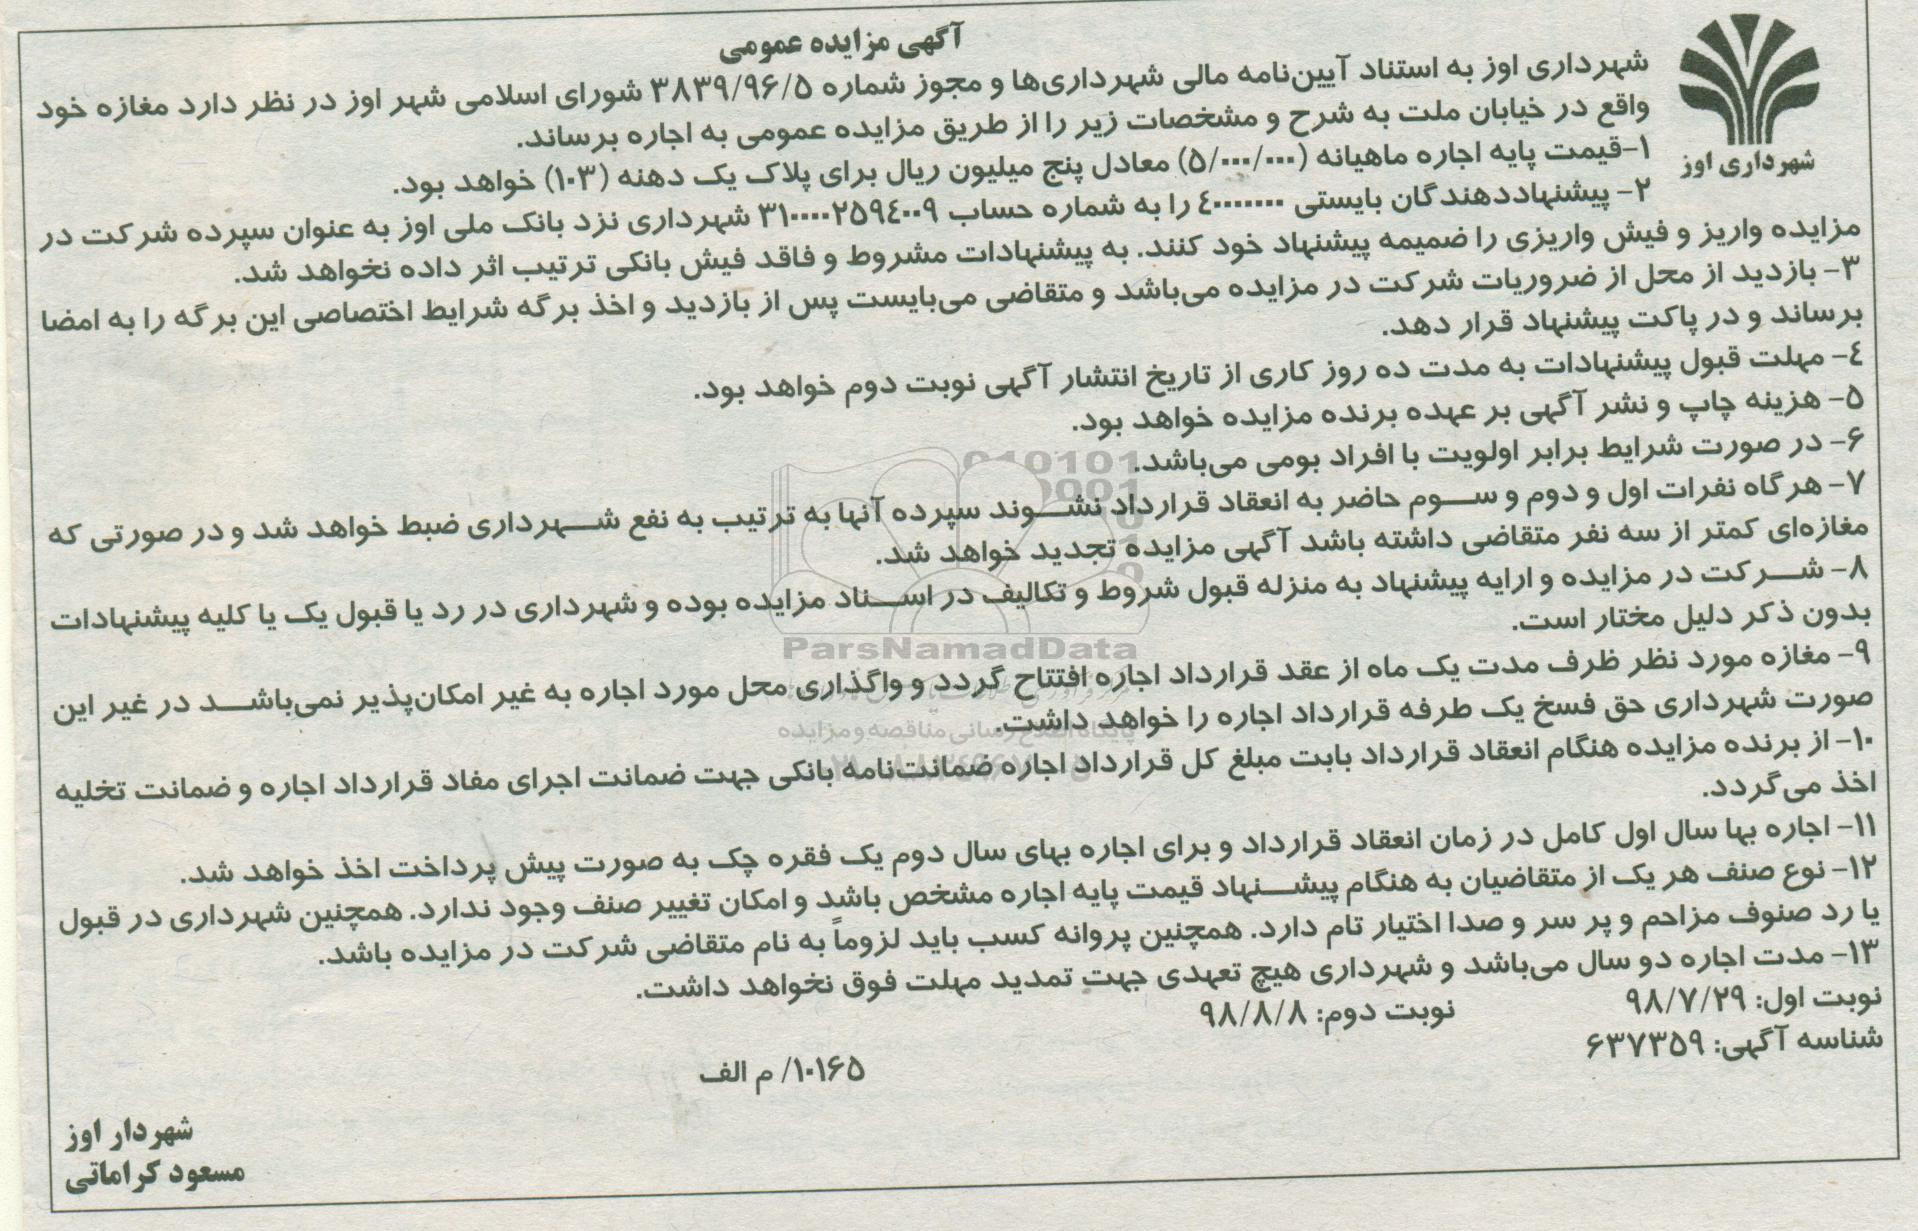 آگهی مزایده عمومی
شهرداری اوز به استناد آیین‌نامه مالی شهرداری‌ها و مجوز شماره ۳۸۳۹/۹۶/۵ شورای اسلامی شهر اوز در نظر دارد مغازه خود
واقع در خیابان ملت به شرح و مشخصات زیر را از طریق مزایده عمومی به اجاره برساند.
۱-قیمت پایه اجاره ماهیانه (۵/۰۰۰/۰۰۰) معادل پنج میلیون ریال برای پلاک یک دهنه (۱۰۳) خواهد بود.
۲- پیشنهاددهندگان بایستی ۴۰۰۰۰۰۰۰ را به شماره حساب ۳۱۰۰۰۰۲۵۹۴۰۰۹ شهرداری نزد بانک ملی اوز به عنوان سپرده شرکت در
مزایده واریز و فیش واریزی را ضمیمه پیشنهاد خود کنند. به پیشنهادات مشروط و فاقد فیش بانکی ترتیب اثر داده نخواهد شد.
۳- بازدید از محل از ضروریات شرکت در مزایده می‌باشد و متقاضی می‌بایست پس از بازدید و اخذ برگه شرایط اختصاصی این برگه را به امضا
برساند و در پاکت پیشنهاد قرار دهد.
۴- مهلت قبول پیشنهادات به مدت ده روز کاری از تاریخ انتشار آگهی نوبت دوم خواهد بود.
۵- هزینه چاپ و نشر آگهی بر عهده برنده مزایده خواهد بود.
۶- در صورت شرایط برابر اولویت با افراد بومی می‌باشد.
۷- هرگاه نفرات اول و دوم و سوم حاضر به انعقاد قرارداد نشوند سپرده آنها به ترتیب به نفع شهرداری ضبط خواهد شد و در صورتی که
مغازه‌ای کمتر از سه نفر متقاضی داشته باشد آگهی مزایده تجدید خواهد شد.
۸- شرکت در مزایده و ارایه پیشنهاد به منزله قبول شروط و تکالیف در اسناد مزایده بوده و شهرداری در رد یا قبول یک یا کلیه پیشنهادات
بدون ذکر دلیل مختار است.
۹- مغازه مورد نظر ظرف مدت یک ماه از عقد قرارداد اجاره افتتاح گردد و واگذاری محل مورد اجاره به غیر امکان‌پذیر نمی‌باشد در غیر این
صورت شهرداری حق فسخ یک طرفه قرارداد اجاره را خواهد داشت.
۱۰- از برنده مزایده هنگام انعقاد قرارداد بابت مبلغ کل قرارداد اجاره ضمانت‌نامه بانکی جهت ضمانت اجرای مفاد قرارداد اجاره و ضمانت تخلیه
اخذ می‌گردد.
۱۱- اجاره بها سال اول کامل در زمان انعقاد قرارداد و برای اجاره بهای سال دوم یک فقره چک به صورت پیش پرداخت اخذ خواهد شد.
۱۲- نوع صنف هر یک از متقاضیان به هنگام پیشنهاد قیمت پایه اجاره مشخص باشد و امکان تغییر صنف وجود ندارد. همچنین شهرداری در قبول
یا رد صنوف مزاحم و پر سر و صدا اختیار تام دارد. همچنین پروانه کسب باید لزوماً به نام متقاضی شرکت در مزایده باشد.
۱۳- مدت اجاره دو سال می‌باشد و شهرداری هیچ تعهدی جهت تمدید مهلت فوق نخواهد داشت.
نوبت اول: ۹۸/۷/۲۹ نوبت دوم: ۹۸/۸/۸
شناسه آگهی: ۶۳۷۳۵۹
۱۰۱۶۵/ م الف
شهردار اوز
مسعود کراماتی
شهرداری اوز
ParsNamadData
پایگاه اطلاع رسانی مناقصه و مزایده